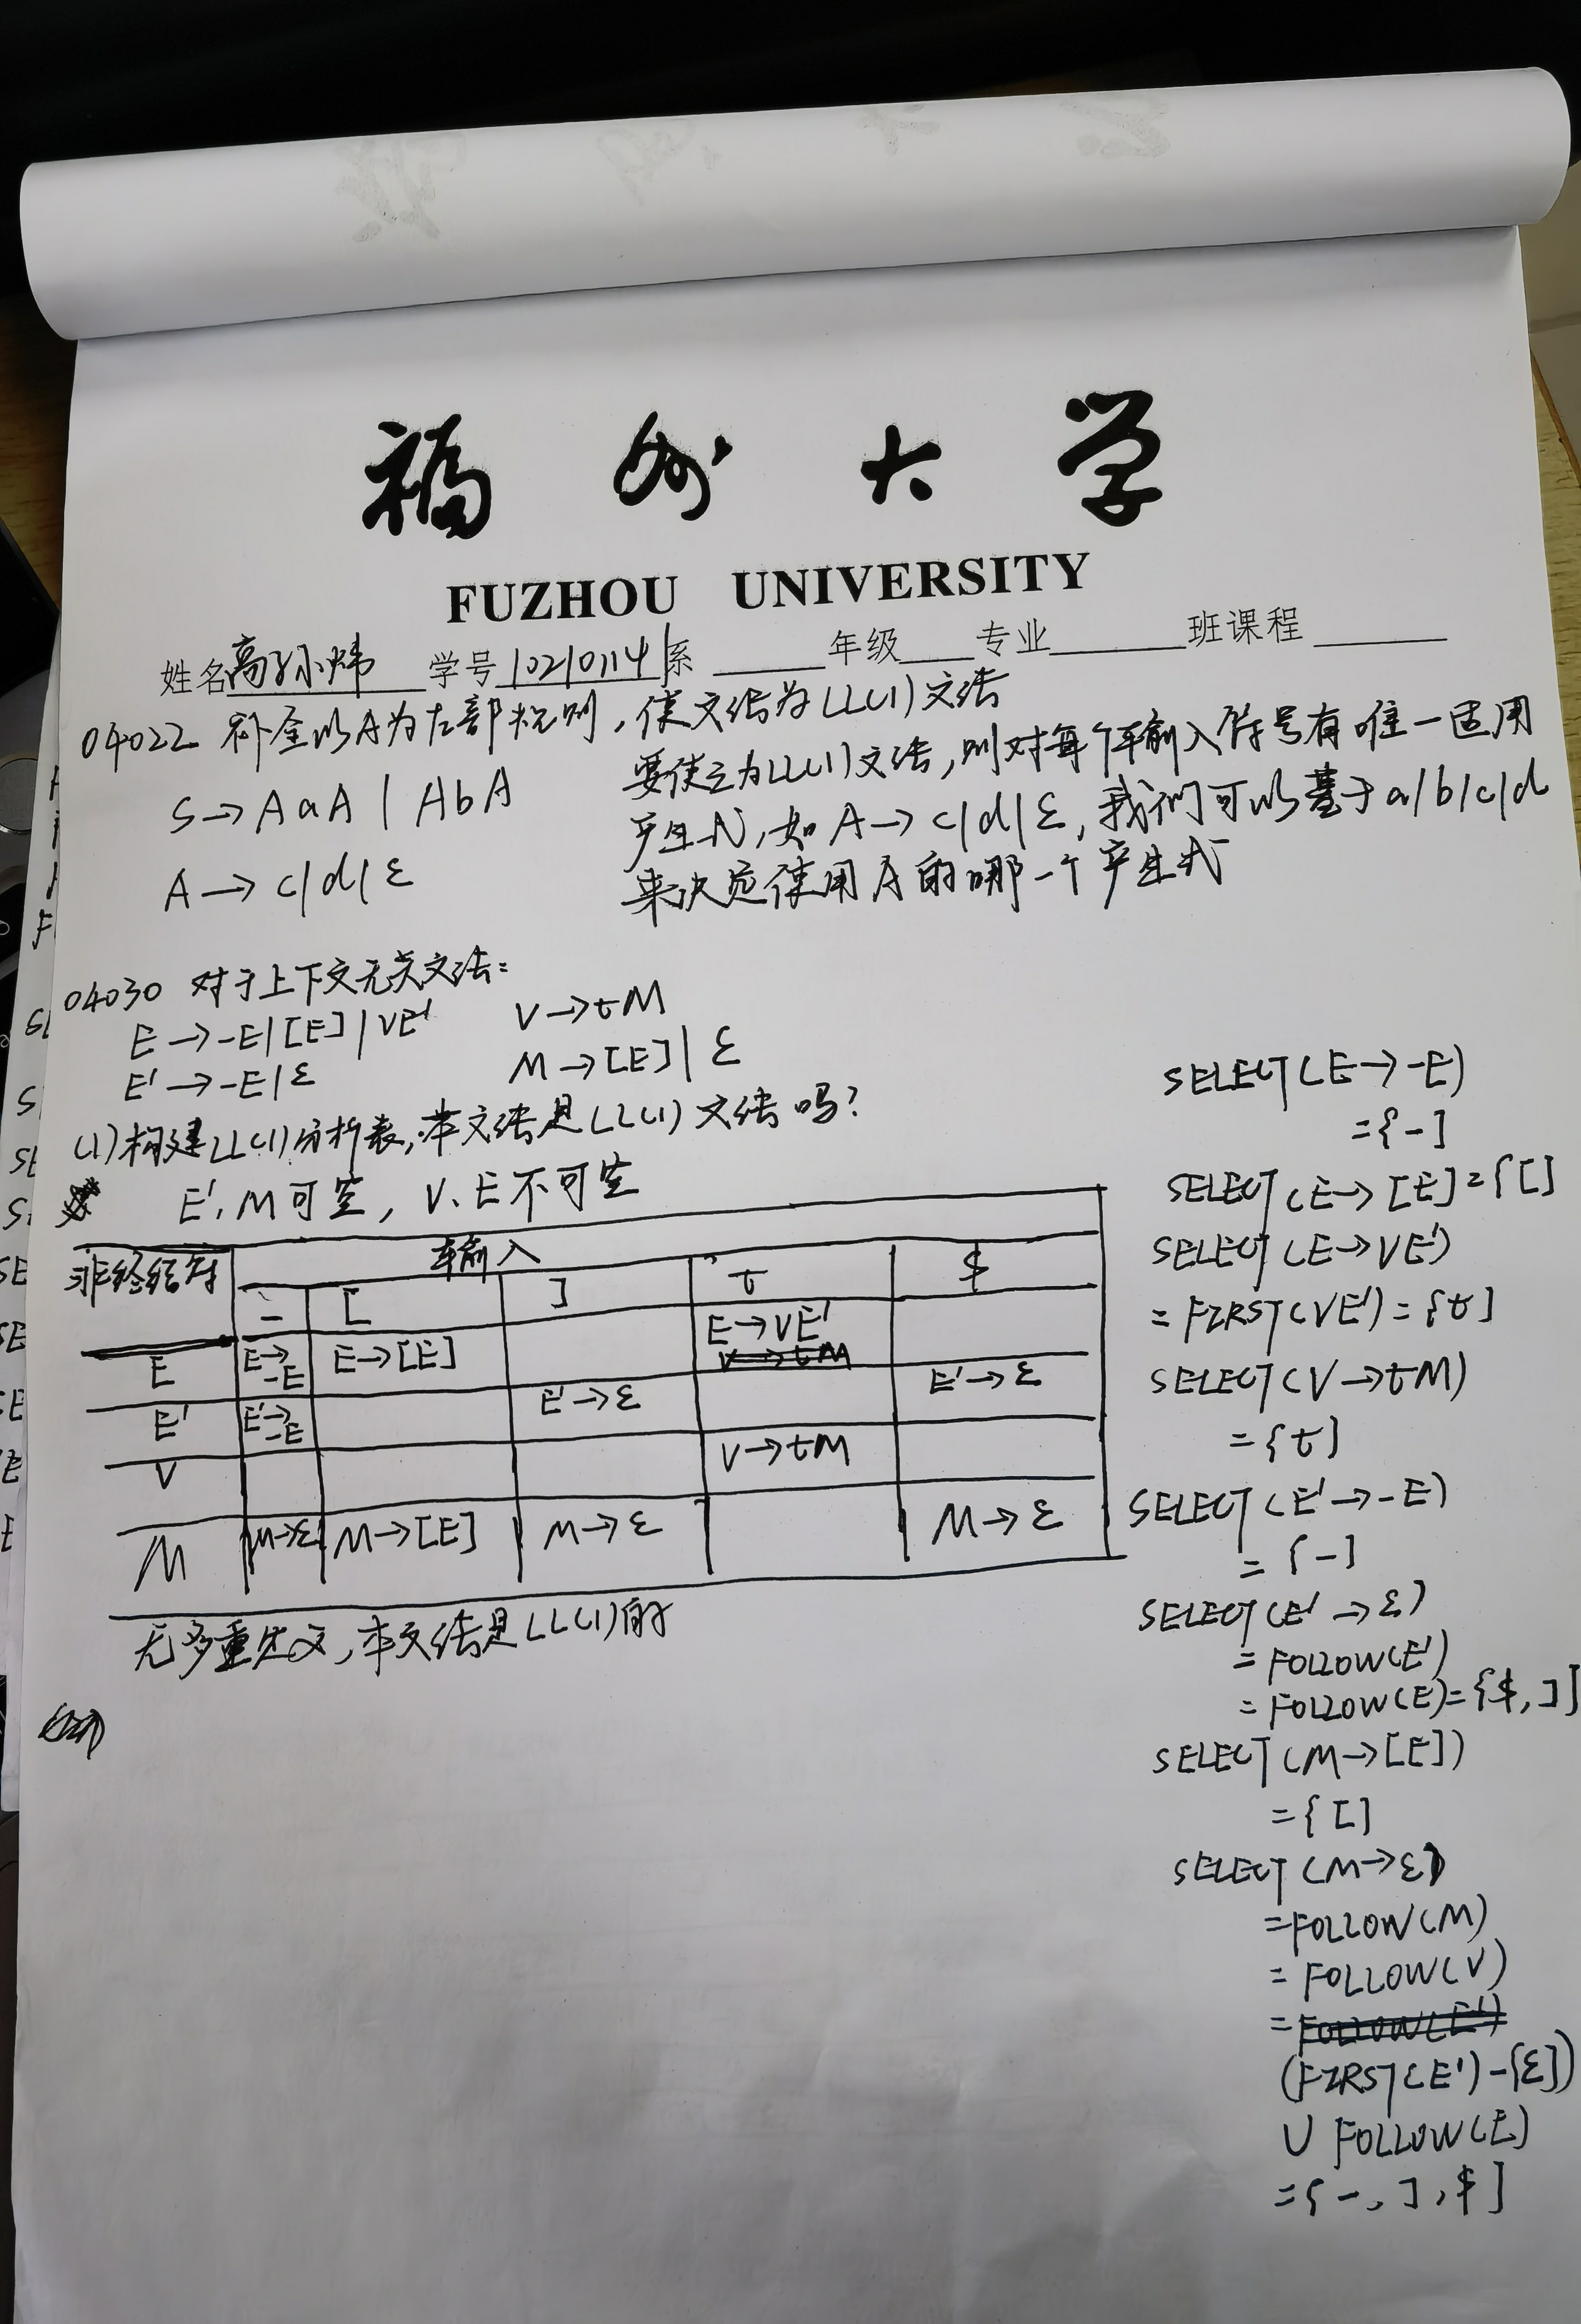 福州大学
FUZHOU UNIVERSITY
姓名 学号102101141系 年级 专业 班课程
04022 补全以A为左部规则，使文法为LL(1)文法
S→AaA | AbA
A→c|d|ε
要使之为LL(1)文法，则对每个输入符号有唯一适用
产生式，如A→c|d|ε，我们可以基于a/b/c/d
来决定使用A的哪一个产生式
04030 对于上下文无关文法：
E→-E|[E]|VE' V→tM
E'→-E|ε M→[E]|ε
(1)构建LL(1)分析表，本文法是LL(1)文法吗？
E'、M可空，V、E不可空
非终结符 输入
- [ ] t $
E E→-E E→[E] E→VE'
E' E'→-E E'→ε E'→ε
V V→tM
M M→ε M→[E] M→ε M→ε
无多重定义，本文法是LL(1)的
SELECT(E→-E)
={-}
SELECT(E→[E]={[}
SELECT(E→VE')
=FIRST(VE')={t}
SELECT(V→tM)
={t}
SELECT(E'→-E)
={-}
SELECT(E'→ε)
=FOLLOW(E')
=FOLLOW(E)={$,]}
SELECT(M→[E])
={[}
SELECT(M→ε)
=FOLLOW(M)
=FOLLOW(V)
=
(FIRST(E')-{ε})
∪ FOLLOW(E)
={-,],$}